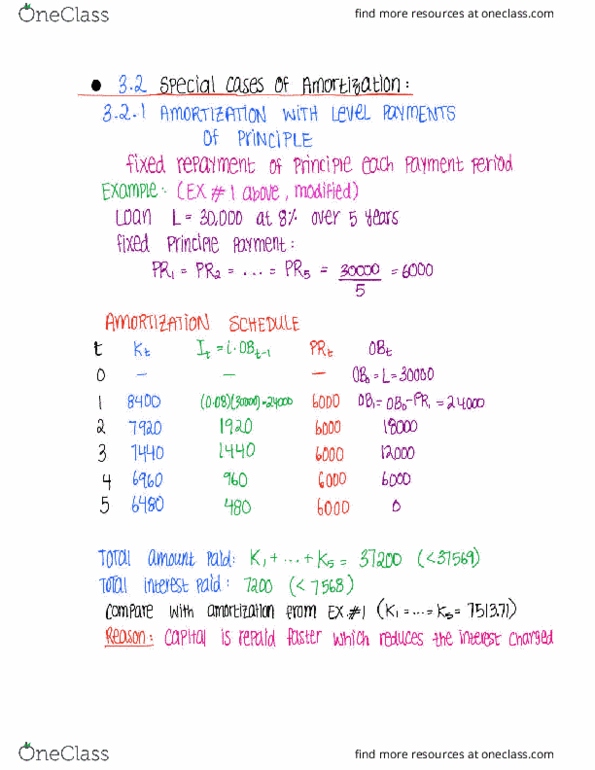 OneClass
find more resources at oneclass.com
• 3.2 Special Cases of Amortization:
3.2.1 AMORTIZATION WITH Level PAYMENTS
Of PRINCIPLE
fixed repayment of Principle each payment period
Example: (EX # 1 above, modified)
Loan L = 30,000 at 8% over 5 years
fixed Principle Payment:
PR₁ = PR₂ = ... = PR₅ = 30000/5 = 6000
AMORTIZATION SCHEDULE
t Kt It = i·OBt-1 PRt OBt
0 — — — OB₀ = L = 30000
1 8400 (0.08)(30000)=24000 6000 OB₁ = OB₀-PR₁ = 24000
2 7920 1920 6000 18000
3 7440 1440 6000 12000
4 6960 960 6000 6000
5 6480 480 6000 0
TOTAL amount Paid: K₁ + ... + K₅ = 37200 (<37569)
TOTAL interest Paid: 7200 (< 7568)
Compare with amortization from EX.#1 (K₁ = ... = K₅ = 7513.71)
Reason: Capital is repaid faster which reduces the interest charged
OneClass
find more resources at oneclass.com